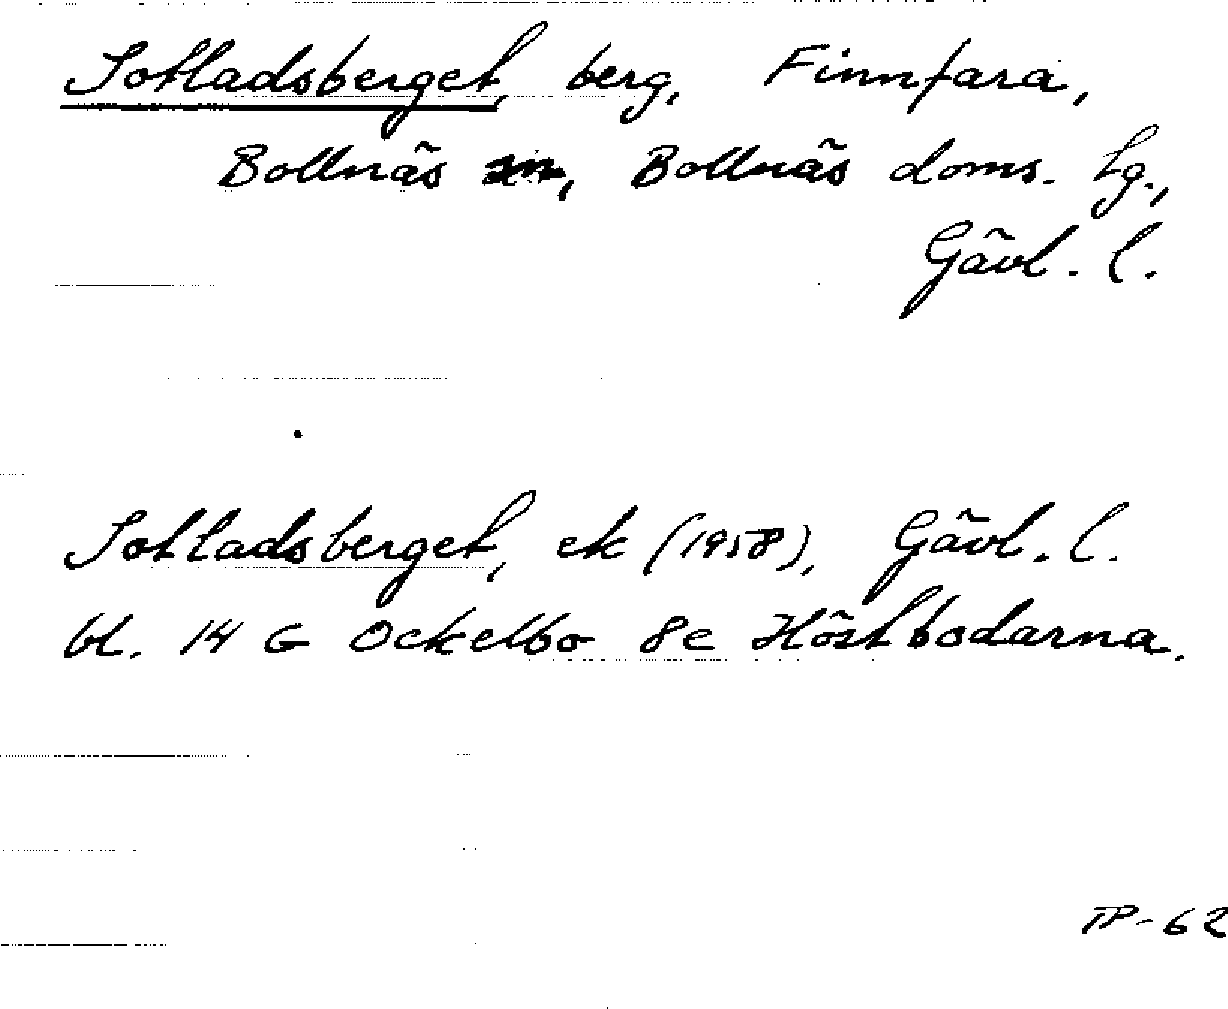 Sotladsberget, berg, Finnfara,
Bollnäs sn, Bollnäs doms. lg.,
Gävl. l.
Sotladsberget, ek (1958), Gävl. l.
bl. 14 G Ockelbo 8e Höstbodarna.
TP-62